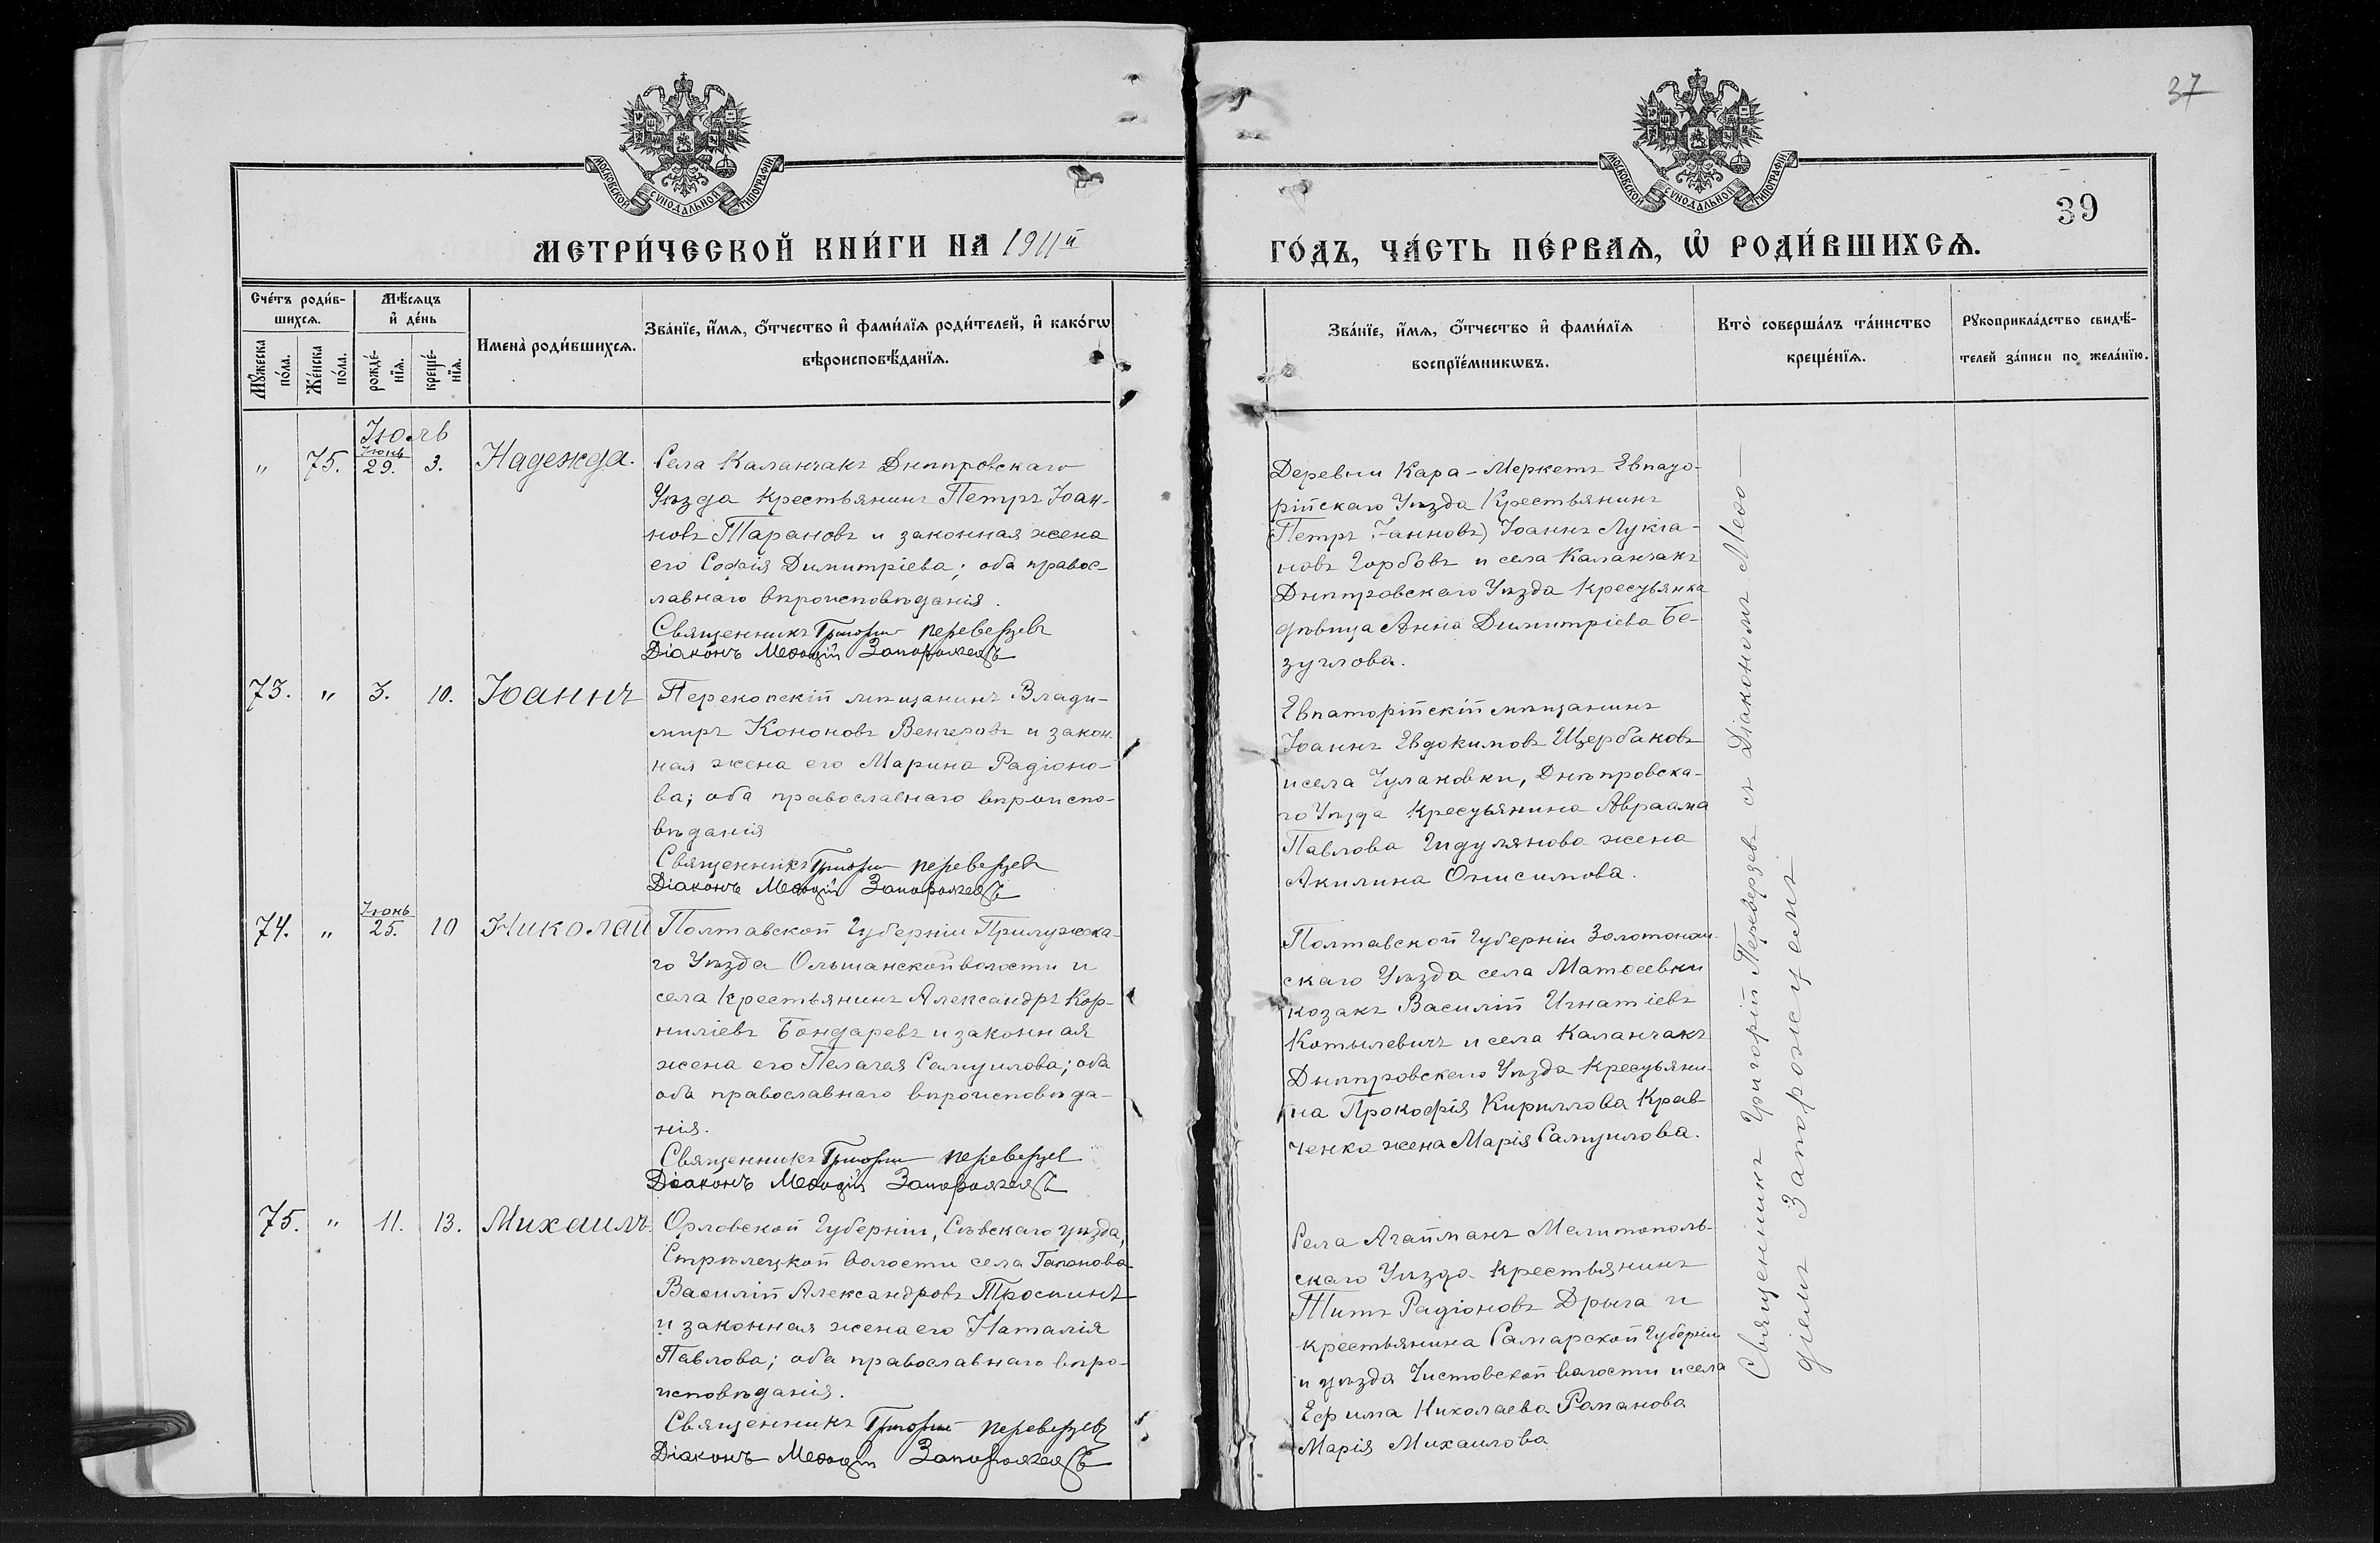 37
39
МОСКОВСКОЙ СѴНОДАЛЬНОЙ ТИПОГРАФІИ
МОСКОВСКОЙ СѴНОДАЛЬНОЙ ТИПОГРАФІИ
МЕТРИ́ЧЕСКОЙ КНИ́ГИ НА 1911й
ГО́ДЪ, ЧА́СТЬ ПЕ́РВАѦ, Ѡ҆ РОДИ́ВШИХСѦ.
Сче́тъ роди́в-
шихсѧ.
Мꙋ́жеска
по́ла.
Же́нска
по́ла.
Мѣ́сѧцъ
и҆ де́нь
рожде́-
нїѧ.
креще́-
нїѧ.
Имена̀ роди́вшихсѧ.
Зва́нїе, и҆́мѧ, ѻ҆́тчество и҆ фами́лїѧ роди́телей, и҆ како́гѡ
вѣроисповѣ́данїѧ.
Зва́нїе, и҆́мѧ, ѻ҆́тчество и҆ фами́лїѧ
воспрїе́мникѡвъ.
Кто̀ соверша́лъ та́инство
креще́нїѧ.
Рꙋкоприкла́дство свидѣ́-
телей за́писи по жела́нїю.
Іюль
" 75. Іюнь 29. 3. Надежда.
Села Каланчакъ Днѣпровскаго
Уѣзда крестьянинъ Петръ Іоан-
новъ Тарановъ и законная жена
его Софія Димитріева; оба правос-
лавнаго вѣроисповѣданія.
Священникъ Григорій Переверзевъ
Діаконъ Меѳодій Запорожецъ
Деревни Кара-Меркетъ Евпато-
рійскаго Уѣзда Крестьянинъ
(Петръ Іанновъ) Іоаннъ Лукіа-
новъ Горбовъ и села Каланчакъ
Днѣпровскаго Уѣзда Крестьянка
дѣвица Анна Димитріева Бе-
зуглова.
73. " 3. 10. Іоаннъ
Перекопскій мѣщанинъ Влади-
миръ Кононовъ Венгеровъ и закон-
ная жена его Марина Радіоно-
ва; оба православнаго вѣроиспо-
вѣданія
Священникъ Григорій Переверзевъ
Діаконъ Меѳодій Запорожецъ
Евпаторійскій мѣщанинъ
Іоаннъ Евдокимовъ Щербаковъ
и села Чулаковки, Днѣпровска-
го Уѣзда Крестьянина Авраама
Павлова Гидулянова жена
Акилина Онисимова.
74. " Іюнь 25. 10 Николай
Полтавской Губерніи Прилужска-
го Уѣзда Ольшанской волости и
села Крестьянинъ Александръ Кор-
ниліевъ Бондаревъ и законная
жена его Пелагея Самуилова; оба
оба православнаго вѣроисповѣда-
нія.
Священникъ Григорій Переверзев
Діаконъ Меѳодій Запорожецъ
Полтавской Губерніи Золотонош-
скаго Уѣзда села Матѳеевки
козакъ Василій Игнатіевъ
Котылевичъ и села Каланчакъ
Днѣпровскаго Уѣзда Крестьяни-
на Прокофія Кириллова Крав-
ченка жена Марія Самуилова.
75. " 11. 13. Михаилъ.
Орловской Губерніи, Сѣвскаго уѣзда,
Стрѣлецкой волости села Гапонова
Василій Александровъ Троскинъ
и законная жена его Наталія
Павлова; оба православнаго вѣро-
исповѣданія.
Священникъ Григорій Переверзевъ
Діаконъ Меѳодій Запорожецъ
Села Агайманъ Мелитополь-
скаго Уѣзда крестьянинъ
Титъ Радіоновъ Дрыга и
крестьянина Самарской Губерніи
и уѣзда Чистовской волости и села
Ефима Николаева Романова
Марія Михаилова
Священникъ Григорій Переверзевъ съ Діакономъ Меѳо-
діемъ Запорожцемъ